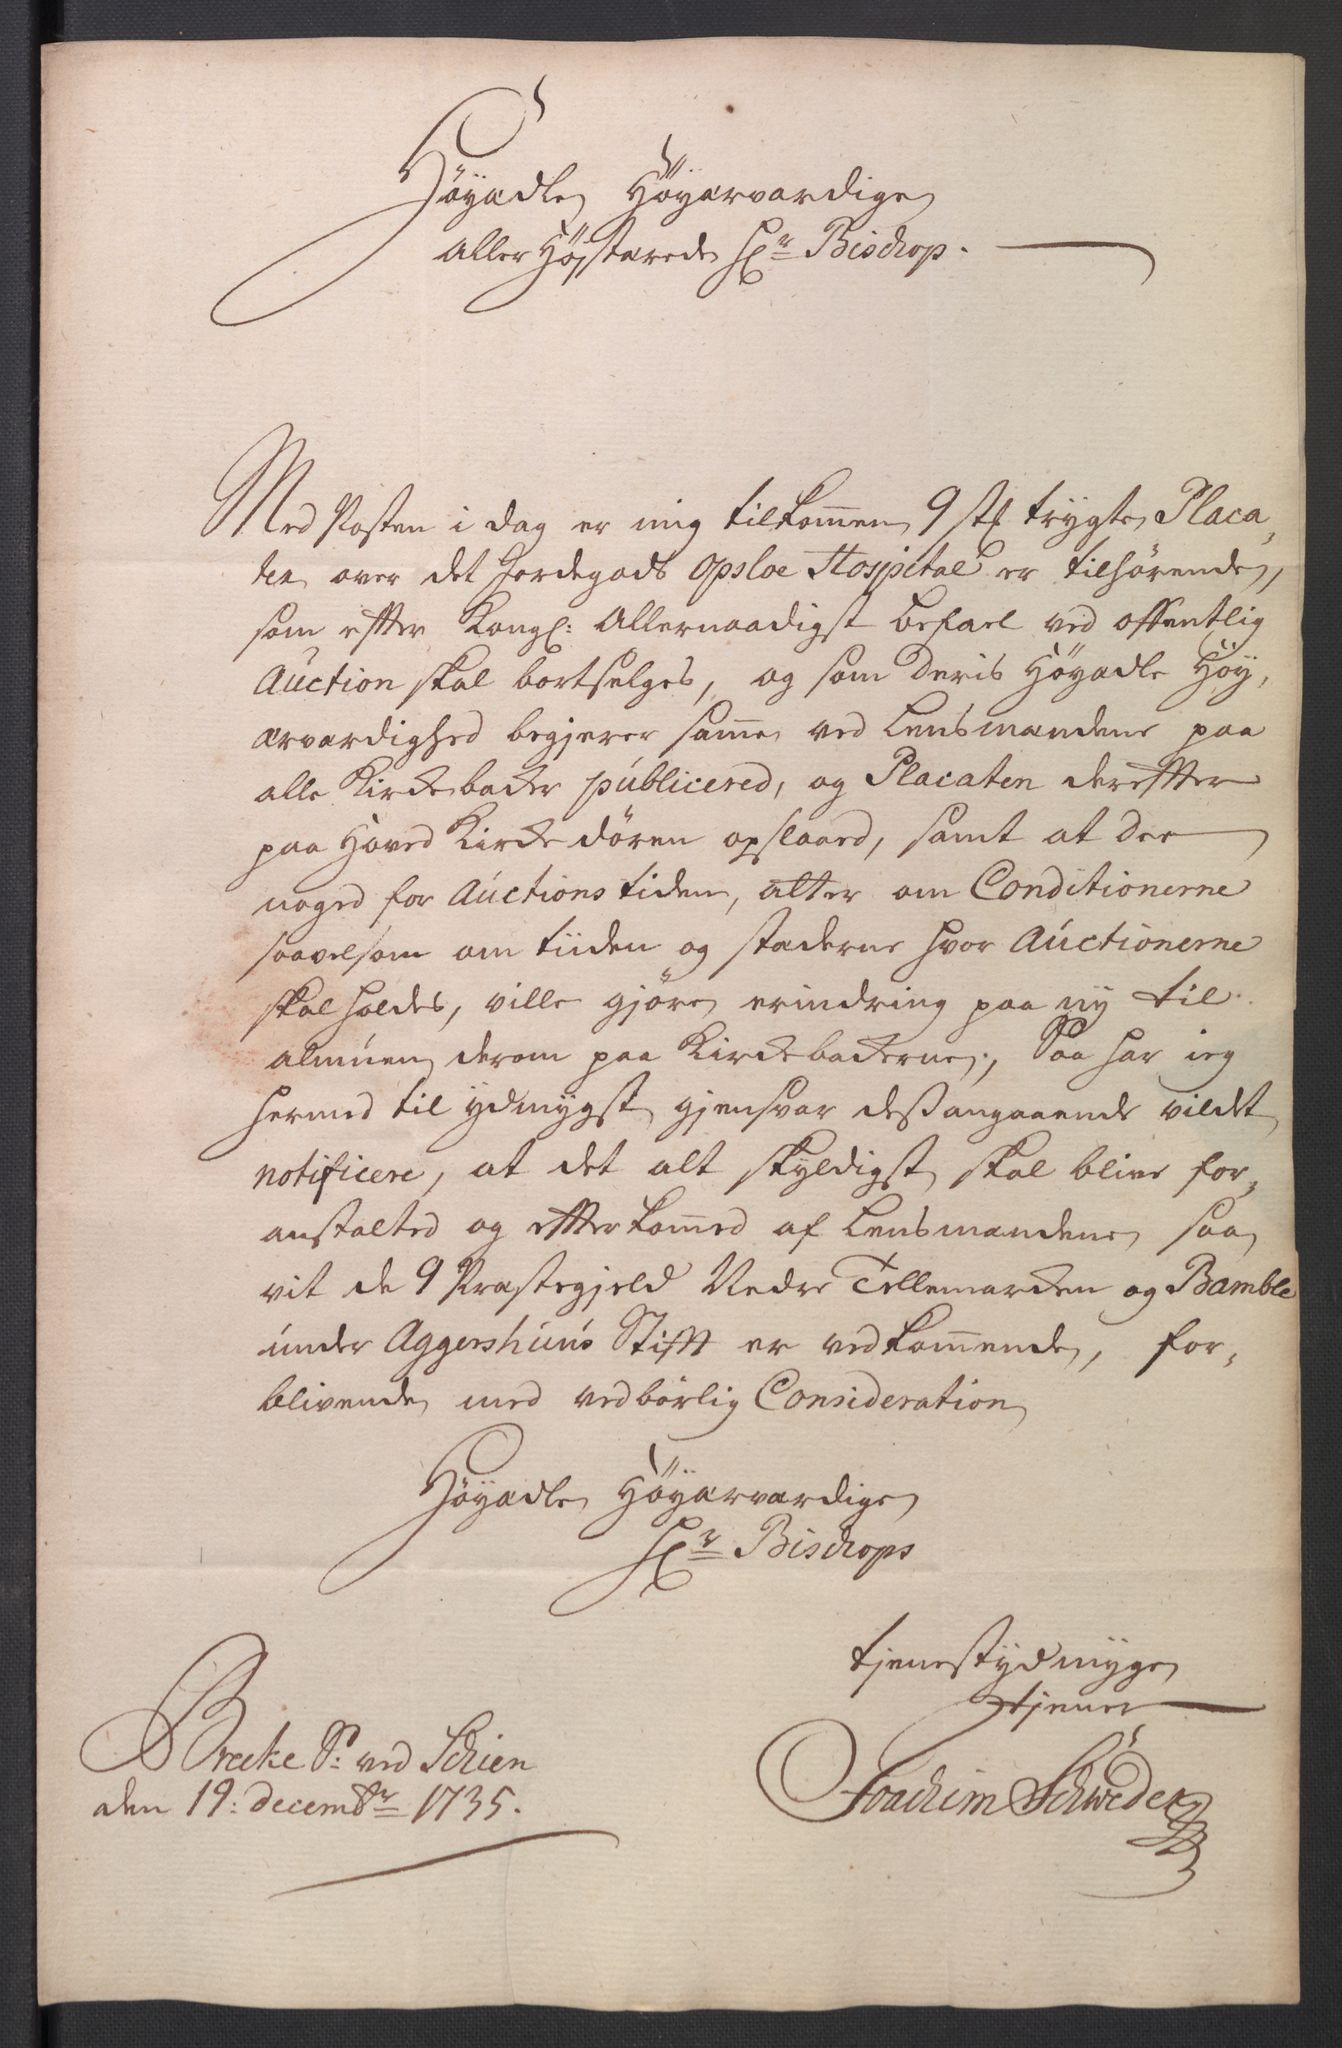 Høyædle Høyærværdige
aller Højstærede Hr Bischop.
Med Posten i dag er mig tilkommen 9 stk trygte Placa,
ter over det Jordegods Opsloe Hospital er tilhørende,
som efter Kongl: Allernaadigst befael ved offentlig
Auction skal bortselges, og som deris Høyædle Høy,
ærværdighed begjerer samme ved Lensmændene paa
alle Kirckebacker publicered, og Placaten derefter
paa Hoved Kircke døren opslaaed, samt at der
noged for Auctions tiden, atter om Conditionerne
saavelsom om tiiden og stæderne hvor Auctionerne
skal holdes, ville gjøres erindring paa ny til
almuen derom paa Kirckebackerne; Saa har ieg
hermed til ydmygst gjensvar dessangaaende vildet
notificere, at det alt skyldigst skal blive for,
anstalted og efterkommed af Lensmændene saa
vit de 9 Præstegjeld Nedre Tellemarcken og Bamble
under Aggershuus Stift er vedkommende, for,
blivende med vedbørlig Consideration
Høyædle Høyærværdige
Hr Bischops
tjenestydmyge
tjener
Brecke S: ved Schien
den 19: decembr 1735.
Joachim Schweder